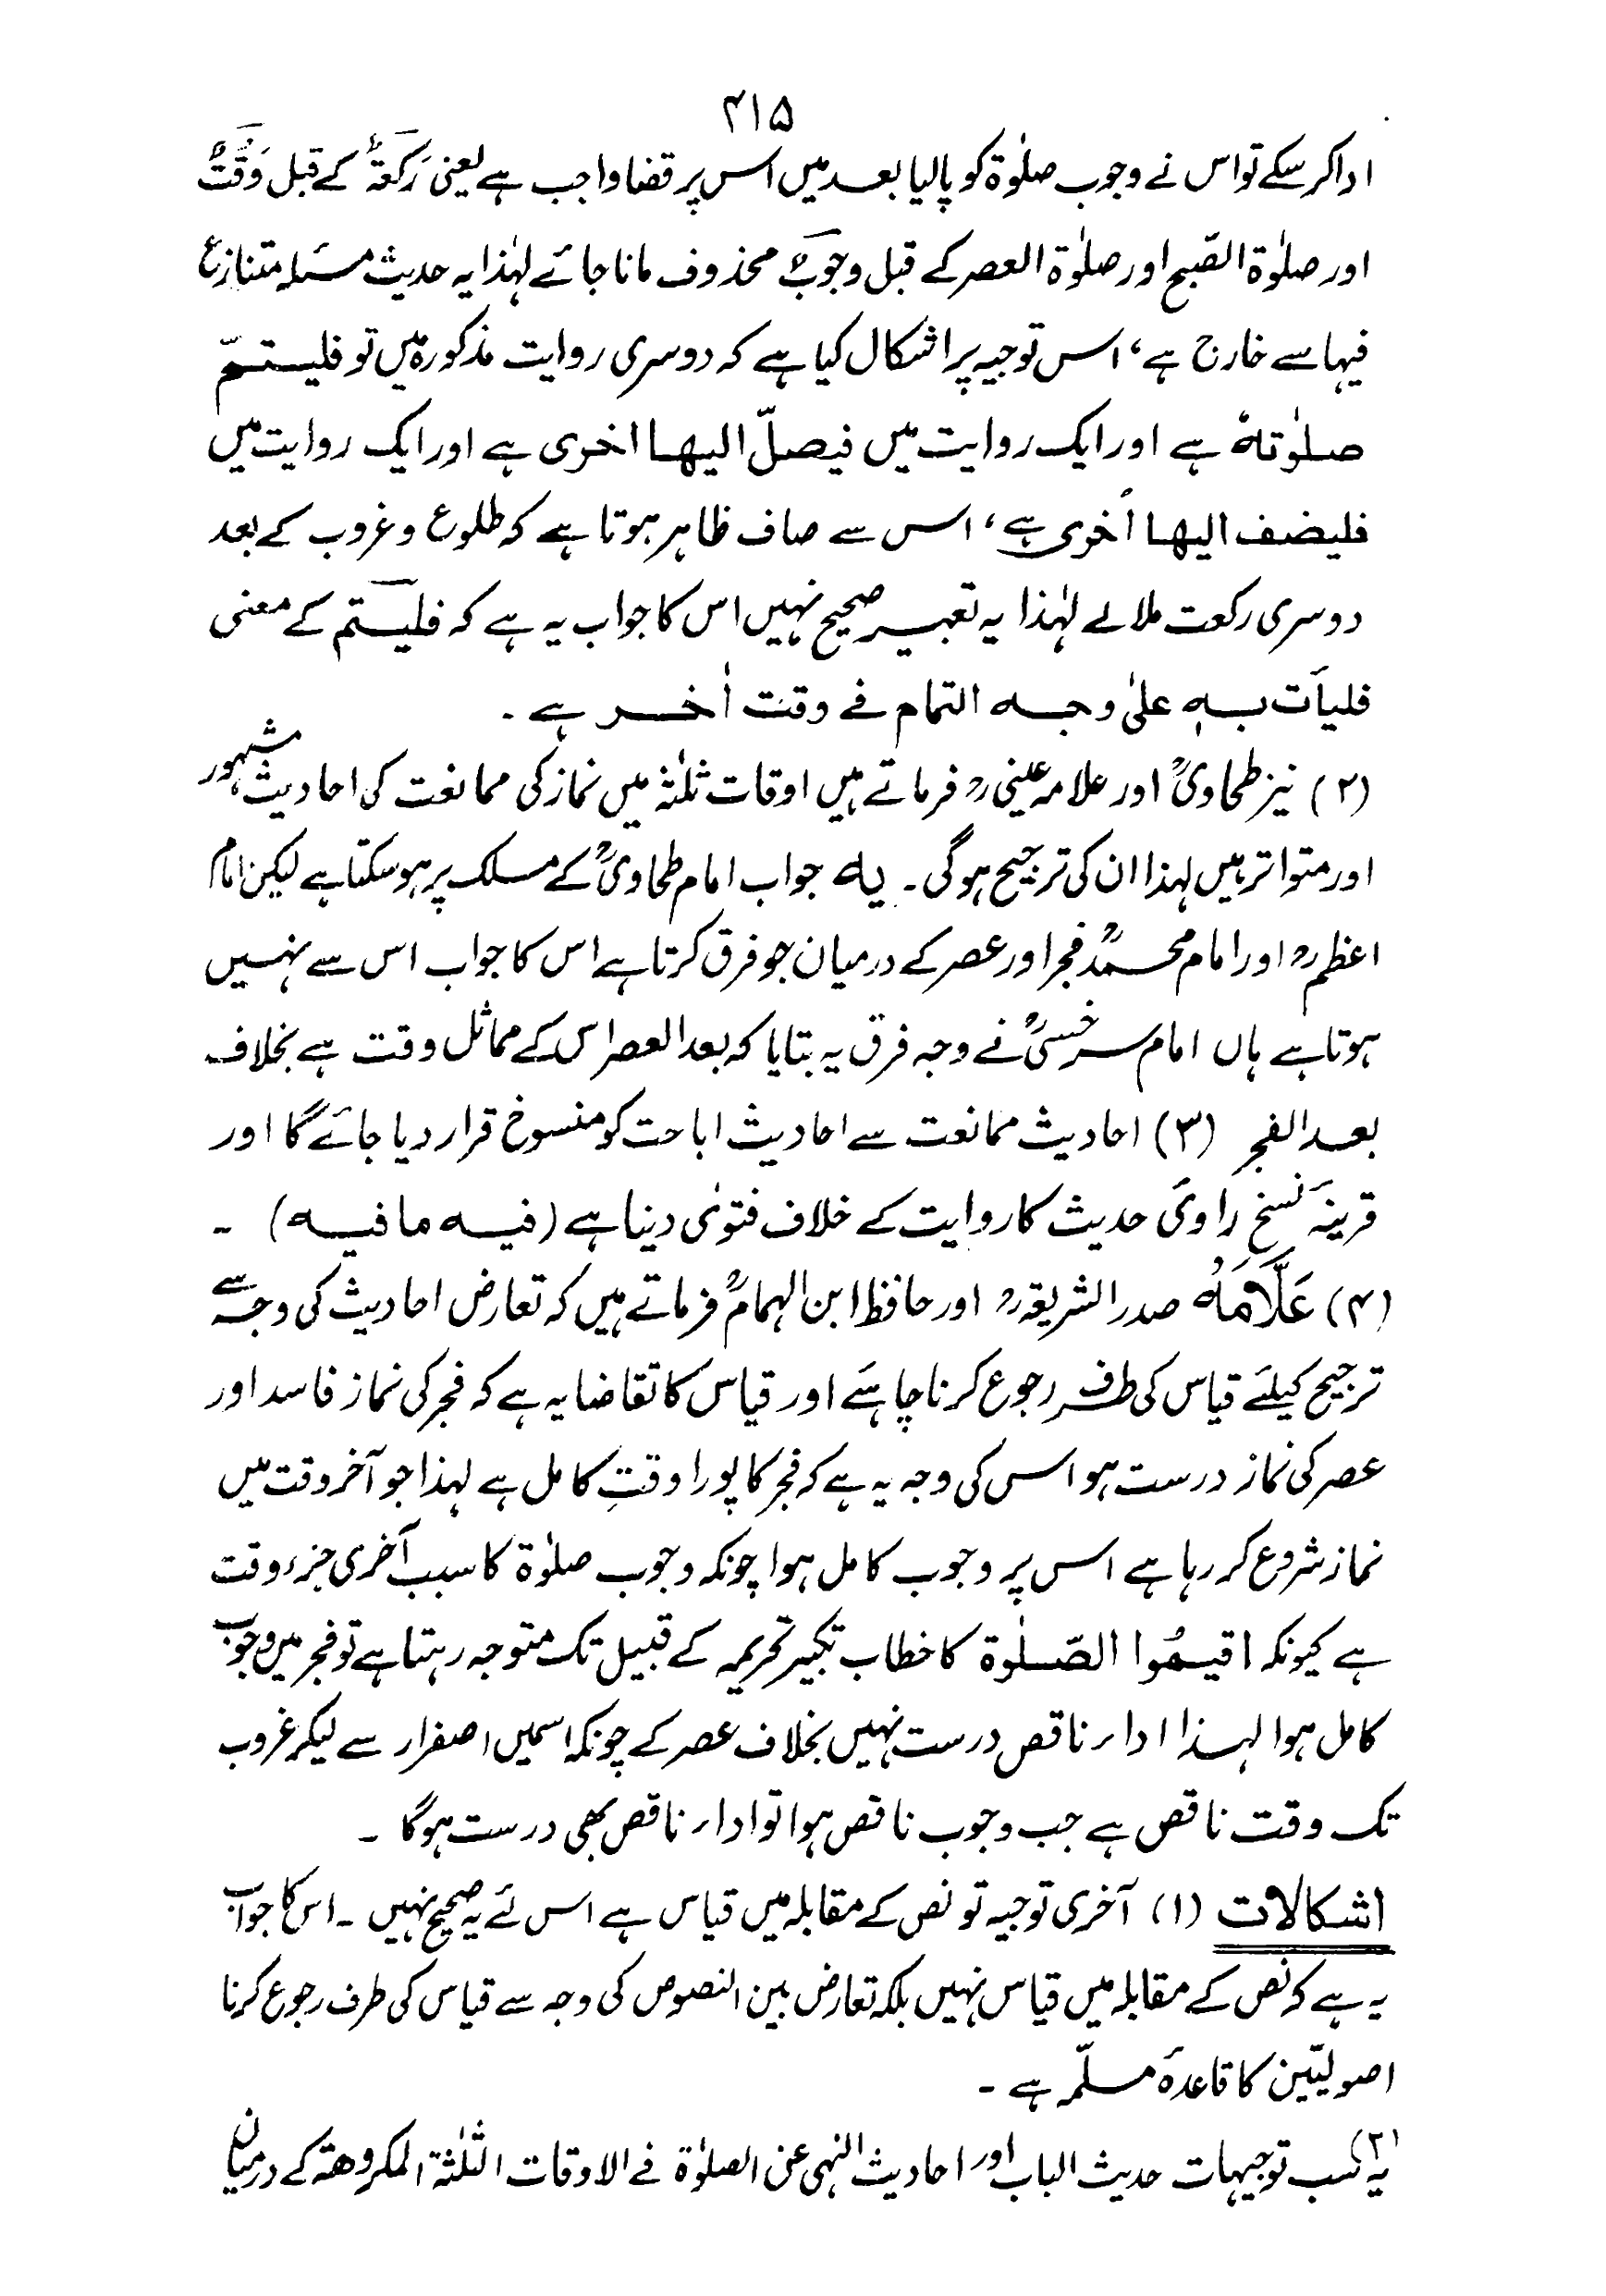 ۴۱۵
ادا کر سکے تو اس نے وجوب صلوٰۃ کو پالیا بعد میں اس پر قضا واجب ہے یعنی رَکَعَۃً کے قبل وَقْتُ
اور صلوٰۃ الصّبح اور صلوٰۃ العصر کے قبل وجوبَ محذوف مانا جائے لہٰذا یہ حدیث مسئلہ متنازع
فیہا سے خارج ہے، اس توجیہ پر اشکال کیا ہے کہ دوسری روایت مذکورہ میں تو فلیتمّ
صلوٰتہٗ ہے اور ایک روایت میں فیصلّ الیھا اخری ہے اور ایک روایت میں
فلیضف الیھا اُخری ہے، اس سے صاف ظاہر ہوتا ہے کہ طلوع و غروب کے بعد
دوسری رکعت ملا لے لہٰذا یہ تعبیر صحیح نہیں اس کا جواب یہ ہے کہ فلیتم کے معنی
فلیأت بہٖ علیٰ وجہ التمام فے وقت اٰخر ہے ۔
(۲) نیز طحاویؒ اور علامہ عینیؒ فرماتے ہیں اوقات ثلٰثہ میں نماز کی ممانعت کی احادیث مشہور
اور متواتر ہیں لہذا ان کی ترجیح ہوگی ۔ یہ جواب امام طحاویؒ کے مسلک پر ہو سکتا ہے لیکن امام
اعظمؒ اور امام محمدؒ فجر اور عصر کے درمیان جو فرق کرتا ہے اس کا جواب اس سے نہیں
ہوتا ہے ہاں امام سرخسیؒ نے وجہ فرق یہ بتایا کہ بعد العصر اس کے مماثل وقت ہے بخلاف
بعد الفجر (۳) احادیث ممانعت سے احادیث اباحت کو منسوخ قرار دیا جائے گا اور
قرینۂ نسخ راویٔ حدیث کا روایت کے خلاف فتویٰ دینا ہے (فیہ ما فیہ) ۔
(۴) عَلَّامَہُ صدر الشریعۃؒ اور حافظ ابن الہمامؒ فرماتے ہیں کہ تعارض احادیث کی وجہ سے
ترجیح کیلئے قیاس کی طرف رجوع کرنا چاہئے اور قیاس کا تقاضا یہ ہے کہ فجر کی نماز فاسد اور
عصر کی نماز درست ہو اس کی وجہ یہ ہے کہ فجر کا پورا وقتِ کامل ہے لہذا جو آخر وقت میں
نماز شروع کر رہا ہے اس پر وجوب کامل ہوا چونکہ وجوب صلوٰۃ کا سبب آخری جزء وقت
ہے کیونکہ اقیمُوا الصّلٰوۃ کا خطاب تکبیر تحریمہ کے قبیل تک متوجہ رہتا ہے تو فجر میں وجوب
کامل ہوا لہذا اداء ناقص درست نہیں بخلاف عصر کے چونکہ اسمیں اصفرار سے لیکر غروب
تک وقت ناقص ہے جب وجوب ناقص ہوا تو اداء ناقص بھی درست ہوگا ۔
اشکالات (۱) آخری توجیہ تو نص کے مقابلہ میں قیاس ہے اس لئے یہ صحیح نہیں ۔ اس کا جواب
یہ ہے کہ نص کے مقابلہ میں قیاس نہیں بلکہ تعارض بین النصوص کی وجہ سے قیاس کی طرف رجوع کرنا
اصولیّین کا قاعدۂ مسلّمہ ہے ۔
(۲) یہ سب توجیہات حدیث الباب اور احادیث النہی عن الصلوٰۃ فے الاوقات الثلٰثۃ المکروھۃ کے درمیان